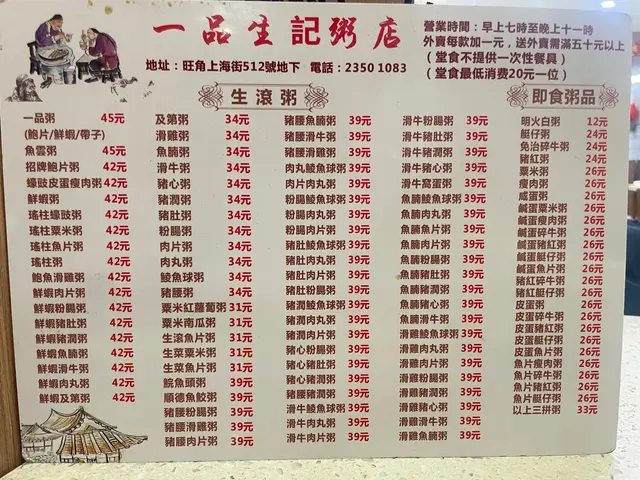 一品生記粥店
地址：旺角上海街512號地下 電話：2350 1083
營業時間：早上七時至晚上十一時
外賣每款加一元，送外賣需滿五十元以上
（堂食不提供一次性餐具）
（堂食最低消費20元一位）
生滾粥
一品粥 45元
(鮑片/鮮蝦/帶子)
魚雲粥 45元
招牌鮑片粥 42元
蠔豉皮蛋瘦肉粥 42元
鮮蝦粥 42元
瑤柱蠔豉粥 42元
瑤柱粟米粥 42元
瑤柱魚片粥 42元
瑤柱粥 42元
鮑魚滑雞粥 42元
鮮蝦肉片粥 42元
鮮蝦粉腸粥 42元
鮮蝦豬肚粥 42元
鮮蝦豬潤粥 42元
鮮蝦魚腩粥 42元
鮮蝦滑牛粥 42元
鮮蝦肉丸粥 42元
鮮蝦及第粥 42元
及第粥 34元
滑雞粥 34元
魚腩粥 34元
滑牛粥 34元
豬心粥 34元
豬潤粥 34元
豬肚粥 34元
粉腸粥 34元
肉片粥 34元
肉丸粥 34元
鯪魚球粥 34元
豬腰粥 34元
粟米紅蘿蔔粥 31元
粟米南瓜粥 31元
生滾魚片粥 31元
生菜粟米粥 31元
生菜魚片粥 31元
鯇魚頭粥 39元
順德魚餃粥 39元
豬腰粉腸粥 39元
豬腰豬肚粥 39元
豬腰肉片粥 39元
豬腰魚腩粥 39元
豬腰滑牛粥 39元
豬腰滑雞粥 39元
肉丸鯪魚球粥 39元
肉片肉丸粥 39元
粉腸鯪魚球粥 39元
粉腸肉丸粥 39元
粉腸肉片粥 39元
豬肚鯪魚球粥 39元
豬肚肉丸粥 39元
豬肚肉片粥 39元
豬肚粉腸粥 39元
豬潤鯪魚球粥 39元
豬潤肉丸粥 39元
豬潤肉片粥 39元
豬心粉腸粥 39元
豬心豬肚粥 39元
豬心豬潤粥 39元
豬腰豬潤粥 39元
滑牛鯪魚球粥 39元
滑牛肉丸粥 39元
滑牛肉片粥 39元
滑牛粉腸粥 39元
滑牛豬肚粥 39元
滑牛豬潤粥 39元
滑牛豬心粥 39元
滑牛窩蛋粥 39元
魚腩鯪魚球粥 39元
魚腩肉丸粥 39元
魚腩魚片粥 39元
魚腩肉片粥 39元
魚腩粉腸粥 39元
魚腩豬肚粥 39元
魚腩豬潤粥 39元
魚腩豬心粥 39元
魚腩滑牛粥 39元
滑雞鯪魚球粥 39元
滑雞肉丸粥 39元
滑雞肉片粥 39元
滑雞粉腸粥 39元
滑雞豬肚粥 39元
滑雞豬潤粥 39元
滑雞豬心粥 39元
滑雞滑牛粥 39元
滑雞魚腩粥 39元
即食粥品
明火白粥 12元
艇仔粥 24元
免治碎牛粥 24元
豬紅粥 24元
粟米粥 26元
瘦肉粥 26元
咸蛋粥 26元
鹹蛋粟米粥 26元
鹹蛋瘦肉粥 26元
鹹蛋碎牛粥 26元
鹹蛋豬紅粥 26元
鹹蛋艇仔粥 26元
鹹蛋魚片粥 26元
豬紅碎牛粥 26元
豬紅艇仔粥 26元
皮蛋粥 26元
皮蛋碎牛粥 26元
皮蛋豬紅粥 26元
皮蛋艇仔粥 26元
皮蛋魚片粥 26元
魚片瘦肉粥 26元
魚片碎牛粥 26元
魚片豬紅粥 26元
魚片艇仔粥 26元
以上三拼粥 33元